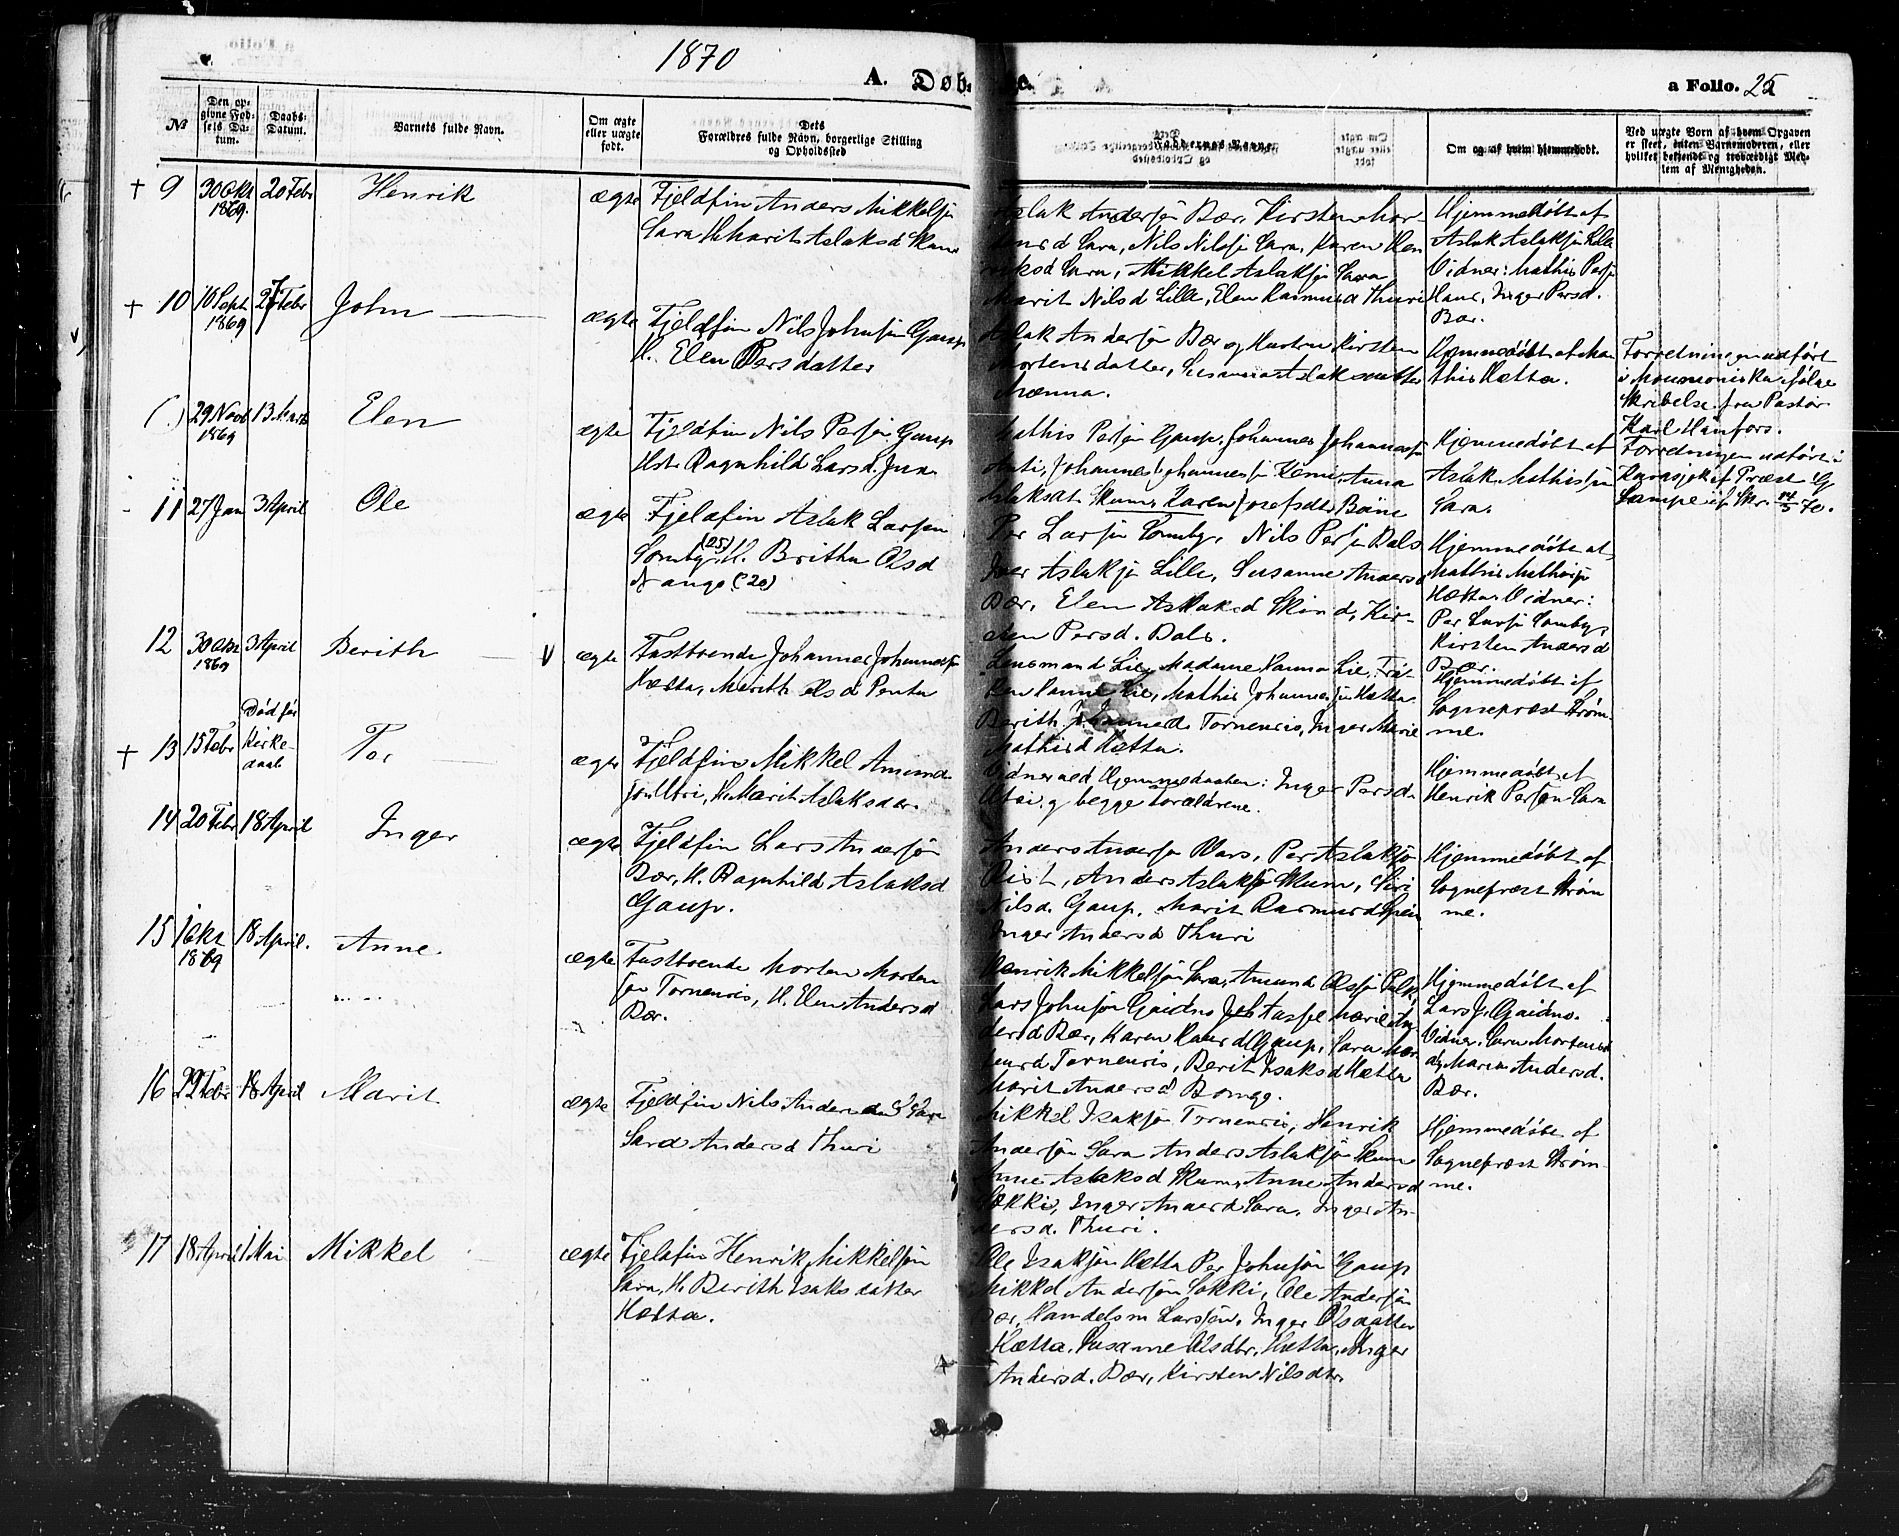 1870
A. Døb-
a Folio. 25
№
Den op-
givne Fød-
sels Da-
tum.
Daabs-
Datum.
Barnets fulde Navn.
Om ægte
eller uægte
født.
Dets
Forældres fulde Navn, borgerlige Stilling
og Opholdssted
Faddernes Navne
Om og af hvem hjemmedøbt.
Ved uægte Børn af hvem Opgaven
er skeet, enten Barnemoderen, eller
hvilket bekjendt og troværdigt Med-
lem af Menigheden.
† 9 30 Okt 1869. 20 Febr Henrik ægte
Fjeldfin Anders Mikkelsen
Sara H. Marit Aslaksd Skum
Aslak Andersen Bær, Kirsten Mor-
tensd Sara, Nils Nilssen Sara, Karen Hen
riksd Sara, Mikkel Aslaksen Sara
Marit Nilsd Lille, Elen Rasmusd Thuri
Hjemmedøbt af
Aslak Aslaksen Lille
Vidner: Mathis Persen
Haur, Inger Persd.
Bær.
† 10 16 Sept 1869 27 Febr John ægte
Fjeldfin Nils Johnsen Gaup
H. Elen Persdatter
Aslak Andersen Bær og Hustru Kirsten
Mortensdatter, Susanna Aslaksdatter
Nænna.
Hjemmedøbt af Ma
this Hætta.
Forretningen udført
i Mounioniska ifølge
Skribelse fra Pastor
Karl Hånfors.
(.) 29 Novb 1869 13 Marts Elen ægte
Fjeldfin Nils Persen Gaup
Hst. Ragnhild Larsd. Juu
Mathis Persen Gaup, Johannes Johannessen
Anti, Johannes Johannesen Kemi, Anna
Aslaksdt. Skum, Karen Josefsdt Bäni
Hjemmedøbt af
Aslak Mathissen
Sara.
Forretningen udført i
Karasjok af Præst G
Lampe if. Skr. 14/5 70.
- 11 27 Jan 3 April Ole ægte
Fjeldfin Aslak Larsen
Somby (25) H. Britha Olsd
Nango (20)
Per Larsen Somby, Nils Persen Bals
Iver Aslaksen Lille, Susanne Andersd
Bær, Elen Aslaksd Skind, Kir-
sten Persd. Bals.
Hjemmedøbt af
Mathis Mathisen
Hætta Vidner:
Per Larsen Somby,
Kirsten Andersd
Bær.
12 30 Okt 1869 3 April Berith V ægte
Fastboende Johannes Johannessen
Hætta, Marith Olsd Penta
Lensmand Lie, Madame Hanna Lie, Frø-
ken Hanna Lie, Mathis Johannesen Hætta
Berith Johannesd. Tornensis, Inger Marie
Mathisd Hætta.
Hjemmedøbt af
Sognepræst Strøm-
me.
† 13 15 Febr Død før
Kirke-
daab Per ægte
Fjeldfin Mikkel Amund-
sen Utsi, H. Marit Aslaksdtr.
Vidner ved Hjemmedaaben: Inger Persd.
Utsi og begge Forældrene.
Hjemmedøbt af
Henrik Persen Sara
14 20 Febr 18 April Inger ægte
Fjeldfin Lars Andersen
Bær, H. Ragnhild Aslaksd
Gaup.
Anders Andersen Vars, Per Aslaksen
Rist, Anders Aslaksen Skum, Siri
Nilsd. Gaup, Marit Rasmusd Spein
Inger Andersd Thuri
Hjemmedøbt af
Sognepræst Strøm
me.
15 1 Okt 1869 18 April. Anne. ægte
Fastboende Morten Morten
sen Tornensis, H. Elen Andersd
Bær.
Henrik Mikkelsen Sara, Amund Olssen Pulk,
Lars Johnsen Gaidno
dersd Bær, Karen Gaup, Sara Mor
tensd Tornensis, Berit Isaksd Hætta
Marit Andersd Bongo.
Hjemmedøbt af
Lars J. Gaidno.
Vidner. Sara Mortensd
og Maria Andersd.
Bær.
16 22 Febr 18 April Marit ægte
Fjeldfin Nils Andersen Sara
Sara Andersd Thuri
Mikkel Isaksen Tornensis, Henrik
Andersen Sara Anders Aslaksen Skum
Anne Aslaksd Skum, Anne Andersd
Sokki, Inger Andersd Sara, Inger An-
dersd. Thuri.
Hjemmedøbt af
Sognepræst Strøm-
me.
17 18 April 1 Mai Mikkel ægte
Fjeldfin Henrik Mikkelsen
Sara, H. Berith Isaksdatter
Hætta.
Ole Isaksen Hætta Per Johnsen Gaup
Mikkel Andersen Sokki, Ole Andersen
Bær, Handelsm Larssen, Inger Olsdatter
Hætta, Susanne Olsdtr. Hætta, Inger
Andersd. Bær, Kirsten Nilsdtr.